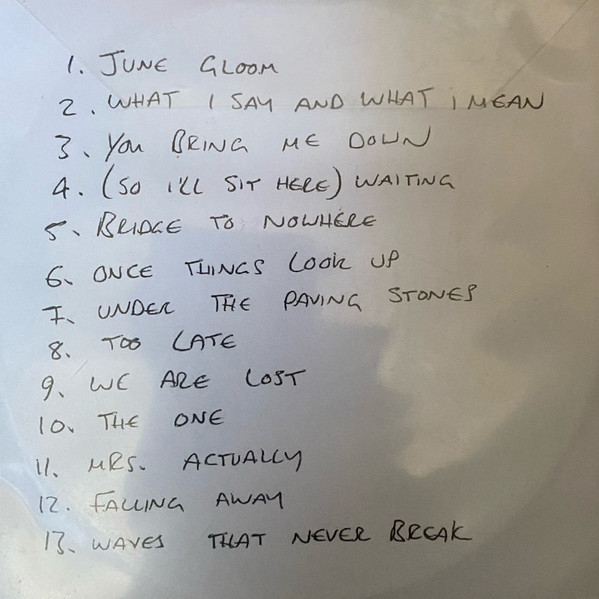 1. JUNE GLOOM
2. WHAT I SAY AND WHAT I MEAN
3. YOU BRING ME DOWN
4. (SO I'LL SIT HERE) WAITING
5. BRIDGE TO NOWHERE
6. ONCE THINGS LOOK UP
7. UNDER THE PAVING STONES
8. TOO LATE
9. WE ARE LOST
10. THE ONE
11. MRS. ACTUALLY
12. FALLING AWAY
13. WAVES THAT NEVER BREAK